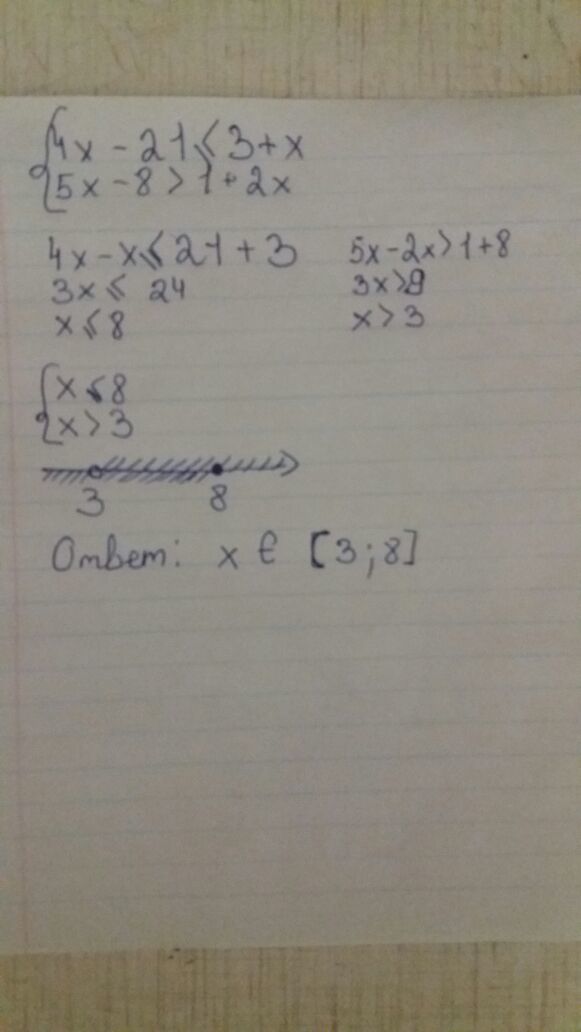 {4x - 21 ⩽ 3 + x
{5x - 8 > 1 + 2x
4x - x ⩽ 21 + 3   5x - 2x > 1 + 8
3x ⩽ 24   3x > 9
x ⩽ 8   x > 3
{x ⩽ 8
{x > 3
3 8
Ответ: x ∈ [3; 8]